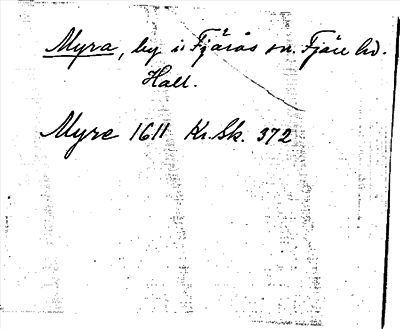 Myra, by i Fjärås sn. Fjäre hd.
Hall.
Myre 1611 Kr. Sk. 372